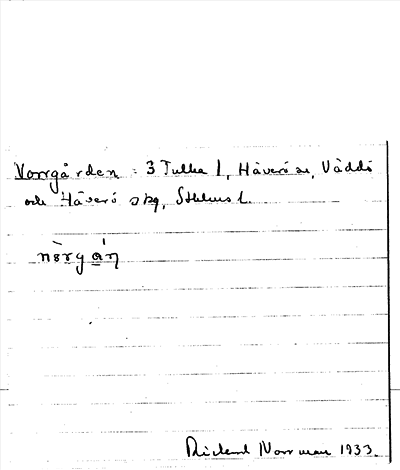 Norrgården : 3 Tulka 1, Häverö sn, Väddö
och Häverö skg, Sthlms l.
nòrgán
Rickard Norrman 1933.